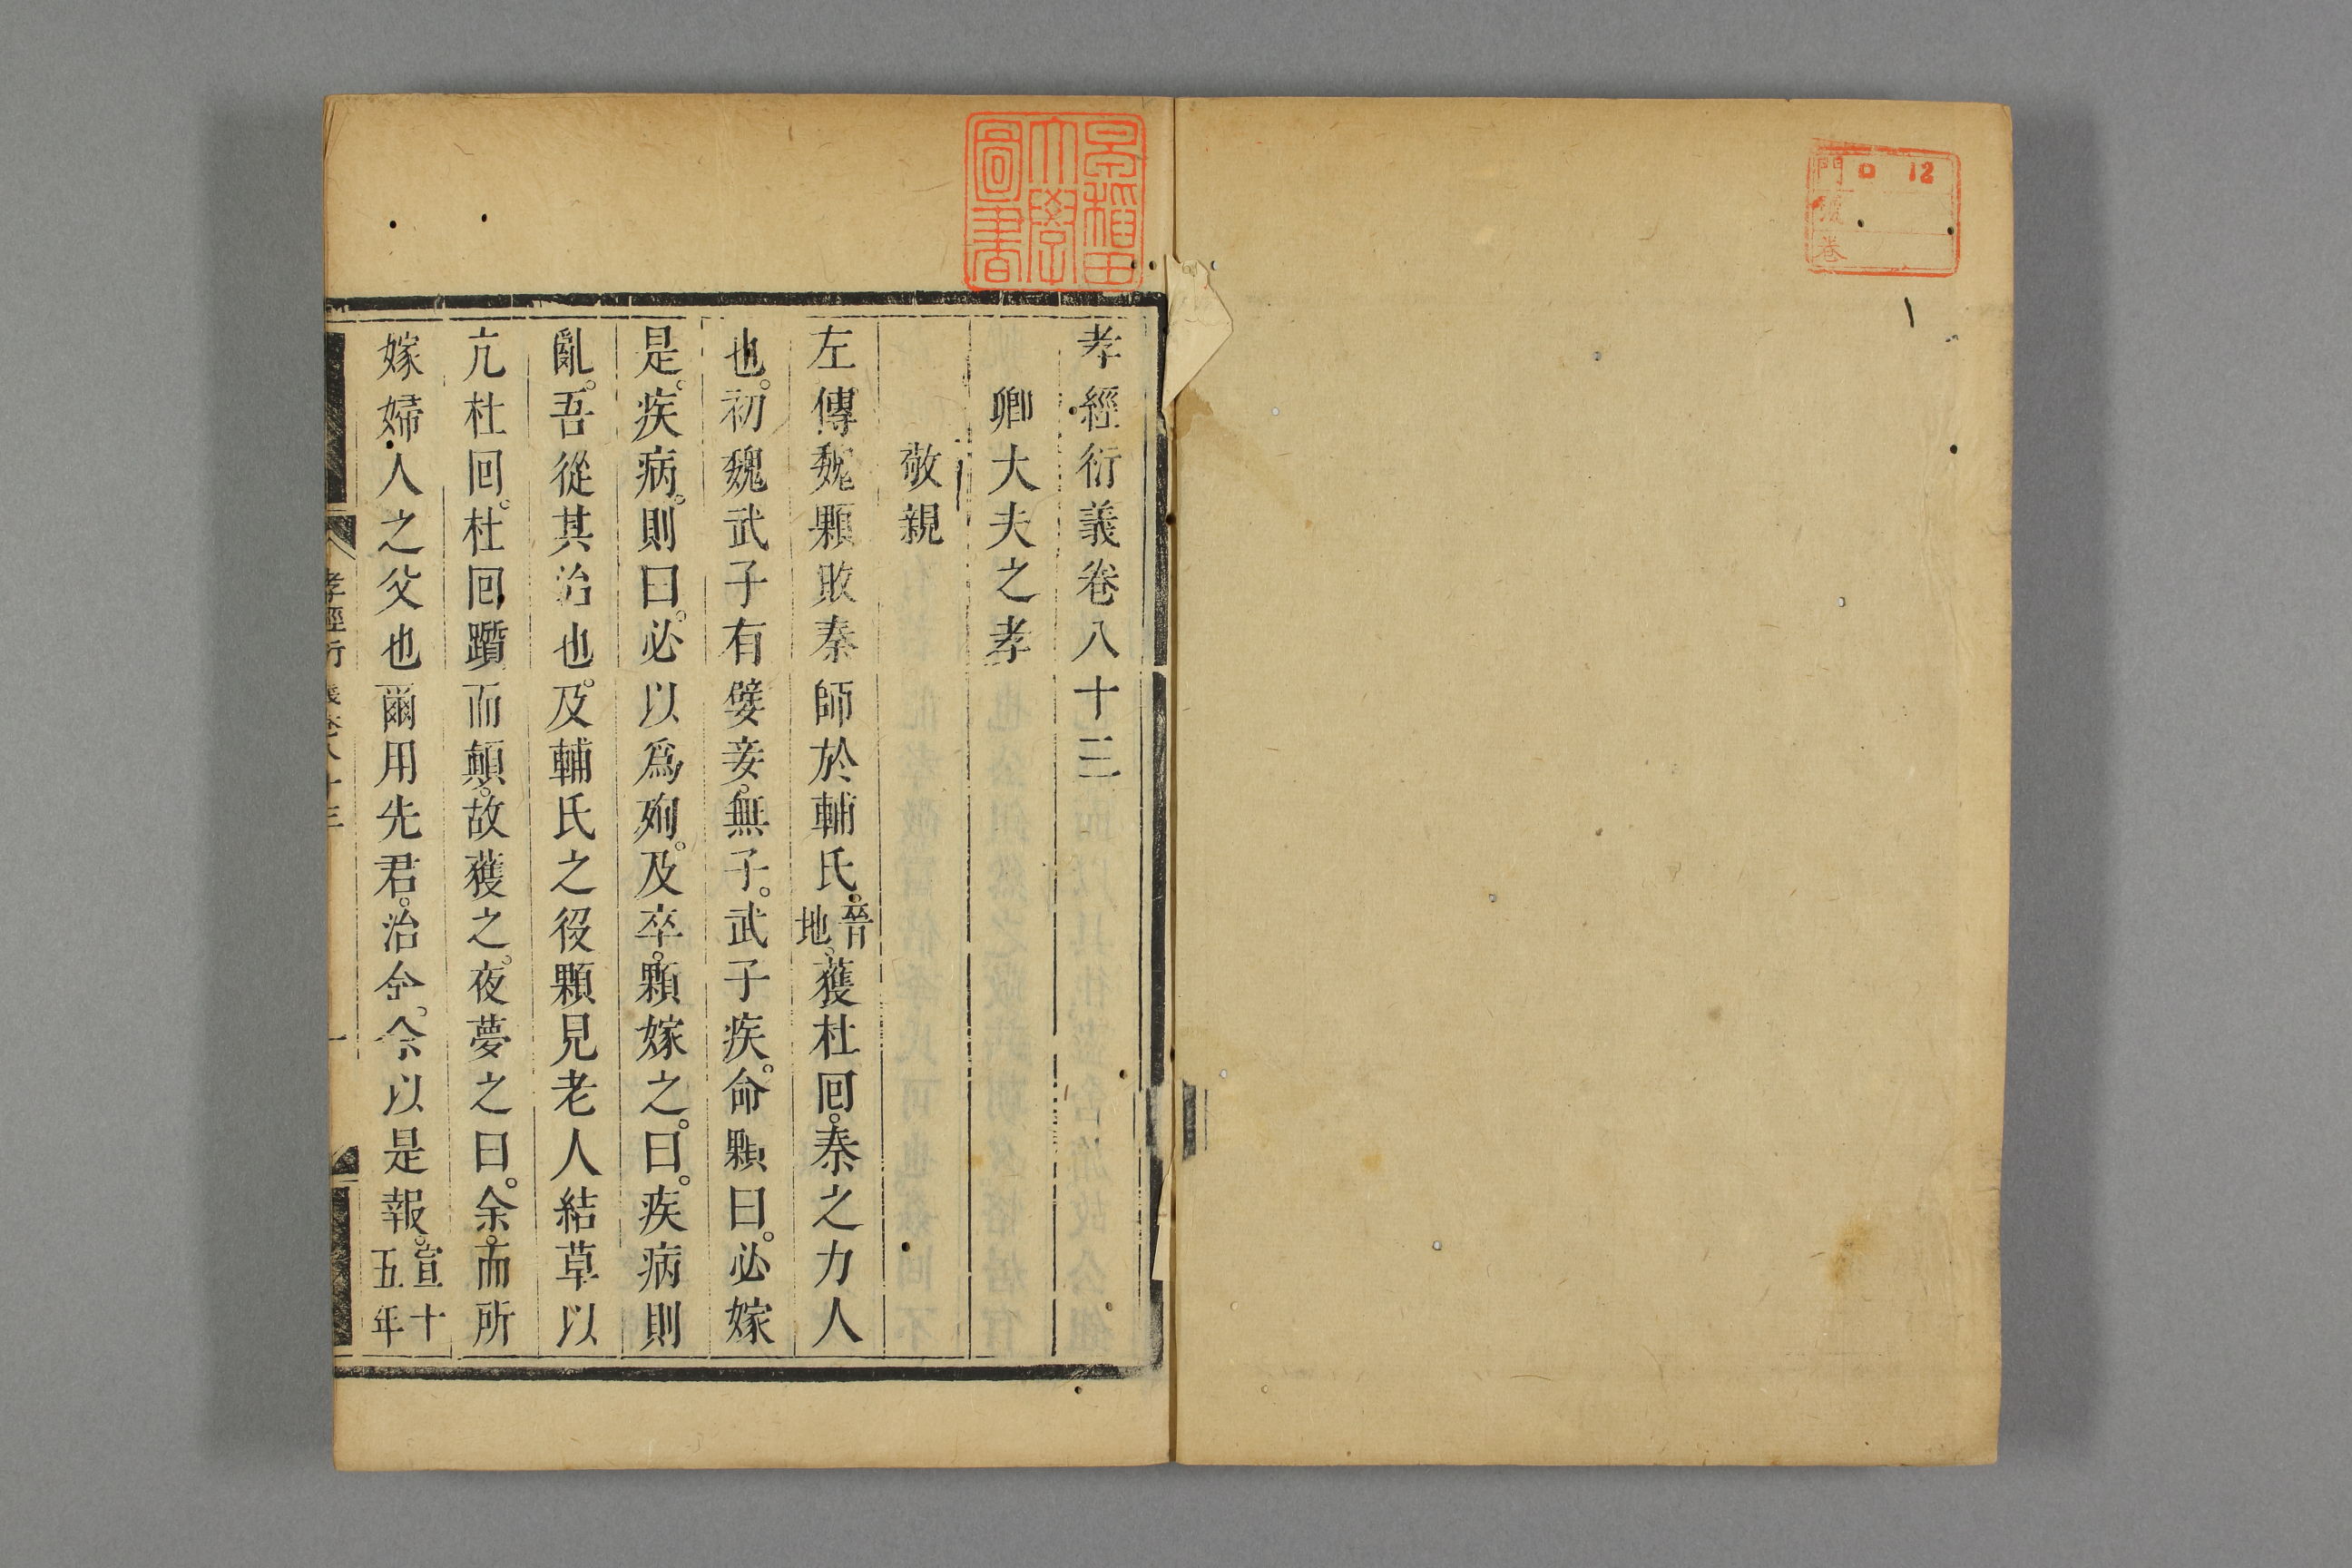 門 ロ 12
號
卷
早稲田大學圖書
孝經衍義卷八十三
卿大夫之孝
敬親
左傳魏顆敗秦師於輔氏。晉地。獲杜回。秦之力人
也。初魏武子有嬖妾。無子。武子疾。命顆曰。必嫁
是。疾病。則曰。必以爲殉。及卒。顆嫁之。曰。疾病則
亂。吾從其治也。及輔氏之役顆見老人結草以
亢杜回。杜回躓而顛。故獲之。夜夢之曰。余。而所
嫁婦人之父也爾用先君。治命。余以是報。宣十五年
孝經衍義卷八十三 一